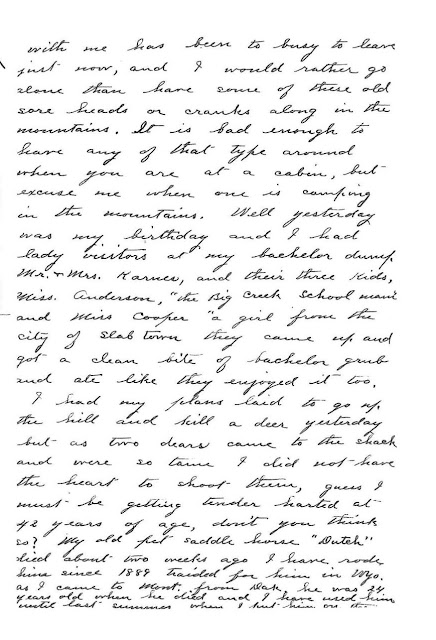 with me has been to busy to leave
just now, and I would rather go
alone than have some of these old
sore heads or cranks along in the
mountains. It is bad enough to
have any of that type around
when you are at a cabin, but
excuse me when one is camping
in the mountains. Well yesterday
was my birthday and I had
lady visitors at my bachelor dump,
Mr. & Mrs. Karnes, and their three kids,
Miss. Anderson, "the Big Creek School mam"
and Miss Cooper "a girl from the
city of Slab town they came up and
got a clean bite of bachelor grub
and ate like they enjoyed it too.
I had my plans laid to go up
the hill and kill a deer yesterday
but as two dears came to the shack
and were so tame I did not have
the heart to shoot them, guess I
must be getting tender harted at
42 years of age, don't you think
so? My old pet saddle horse "Dutch"
died about two weeks ago I have rode
him since 1889 traided for him in Wyo.
as I came to Mont. from Dak, he was 24
years old when he died and I have used him
until last summer when I put him on the